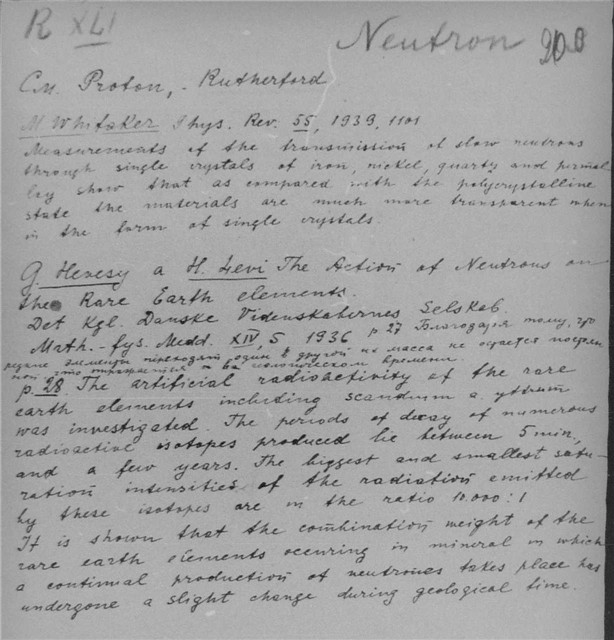 R XLI
Neutron 200
См. Proton, - Rutherford
M Whitaker Phys. Rev. 55, 1939, 1101
Measurements of the transmission of slow neutrons
through single crystals of iron, nickel, quartz and permal
loy show that as compared with the polycrystalline
state the materials are much more transparent when
in the form of single crystals.
G. Hevesy a H. Levi The Action of Neutrons on
the Rare Earth elements.
Det Kgl. Danske Videnskabernes Selskab.
Math.-fys. Medd. XIV, 5 1936 p 27 Благодаря тому, что
редкие элементы переходят один в другой их масса не остается постоян
ной это отражается в геологическом времени.
p. 28. The artificial radioactivity of the rare
earth elements including scandium a. yttrium
was investigated. The periods of decay of numerous
radioactive isotopes produced lie between 5 min,
and a few years. The biggest and smallest satu-
ration intensities of the radiation emitted
by these isotopes are in the ratio 10.000:1
It is shown that the combination weight of the
rare earth elements occuring in mineral in which
a continual production of neutrones takes place has
undergone a slight change during geological time.